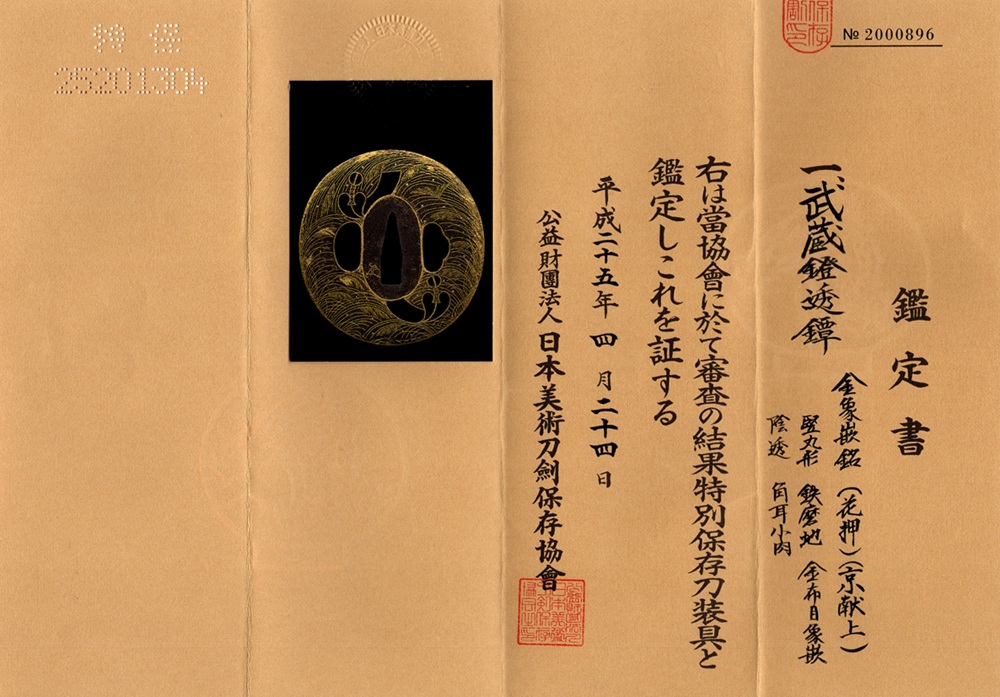 № 2000896
鑑定書
一、武蔵鐙透鐔
金象嵌銘(花押)(京献上)
竪丸形 鉄磨地 金布目象嵌
陰透 角耳小肉
右は當協會に於て審査の結果特別保存刀装具と
鑑定しこれを証する
平成二十五年四月二十四日
公益財團法人日本美術刀劍保存協會
特保
25201304